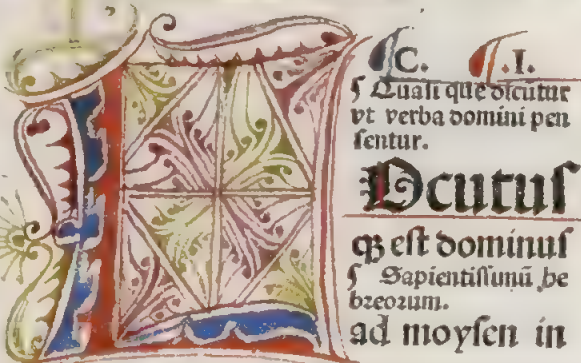 L
C. .I.
ſ Quaſi que dicūtur
vt verba domini pen
ſentur.
Ocutuſ
qꝫ eſt dominuſ
ſ Sapientiſſimū he
breorum.
ad moyſen in